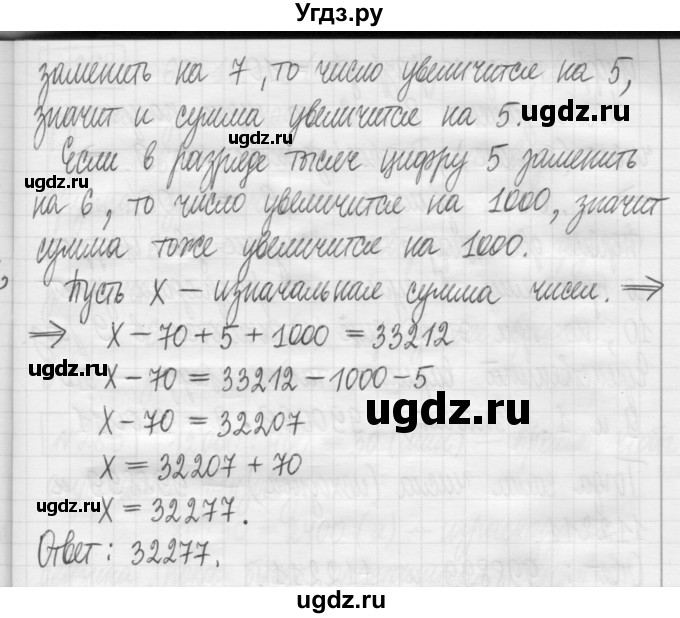 Угдз.ру
заменить на 7, то число увеличится на 5,
значит и сумма увеличится на 5.
ugdz.ru
ugdz.ru
Если в разряде тысяч цифру 5 заменить
ugdz.ru
на 6, то число увеличится на 1000, значит
сумма тоже увеличится на 1000.
Пусть X – изначальная сумма чисел. ⇒
⇒ X – 70 + 5 + 1000 = 33212
ugdz.ru
X – 70 = 33212 – 1000 – 5
ugdz.ru
X – 70 = 32207
X = 32207 + 70
ugdz.ru
X = 32277.
Ответ: 32277.
ugdz.ru
ugdz.ru